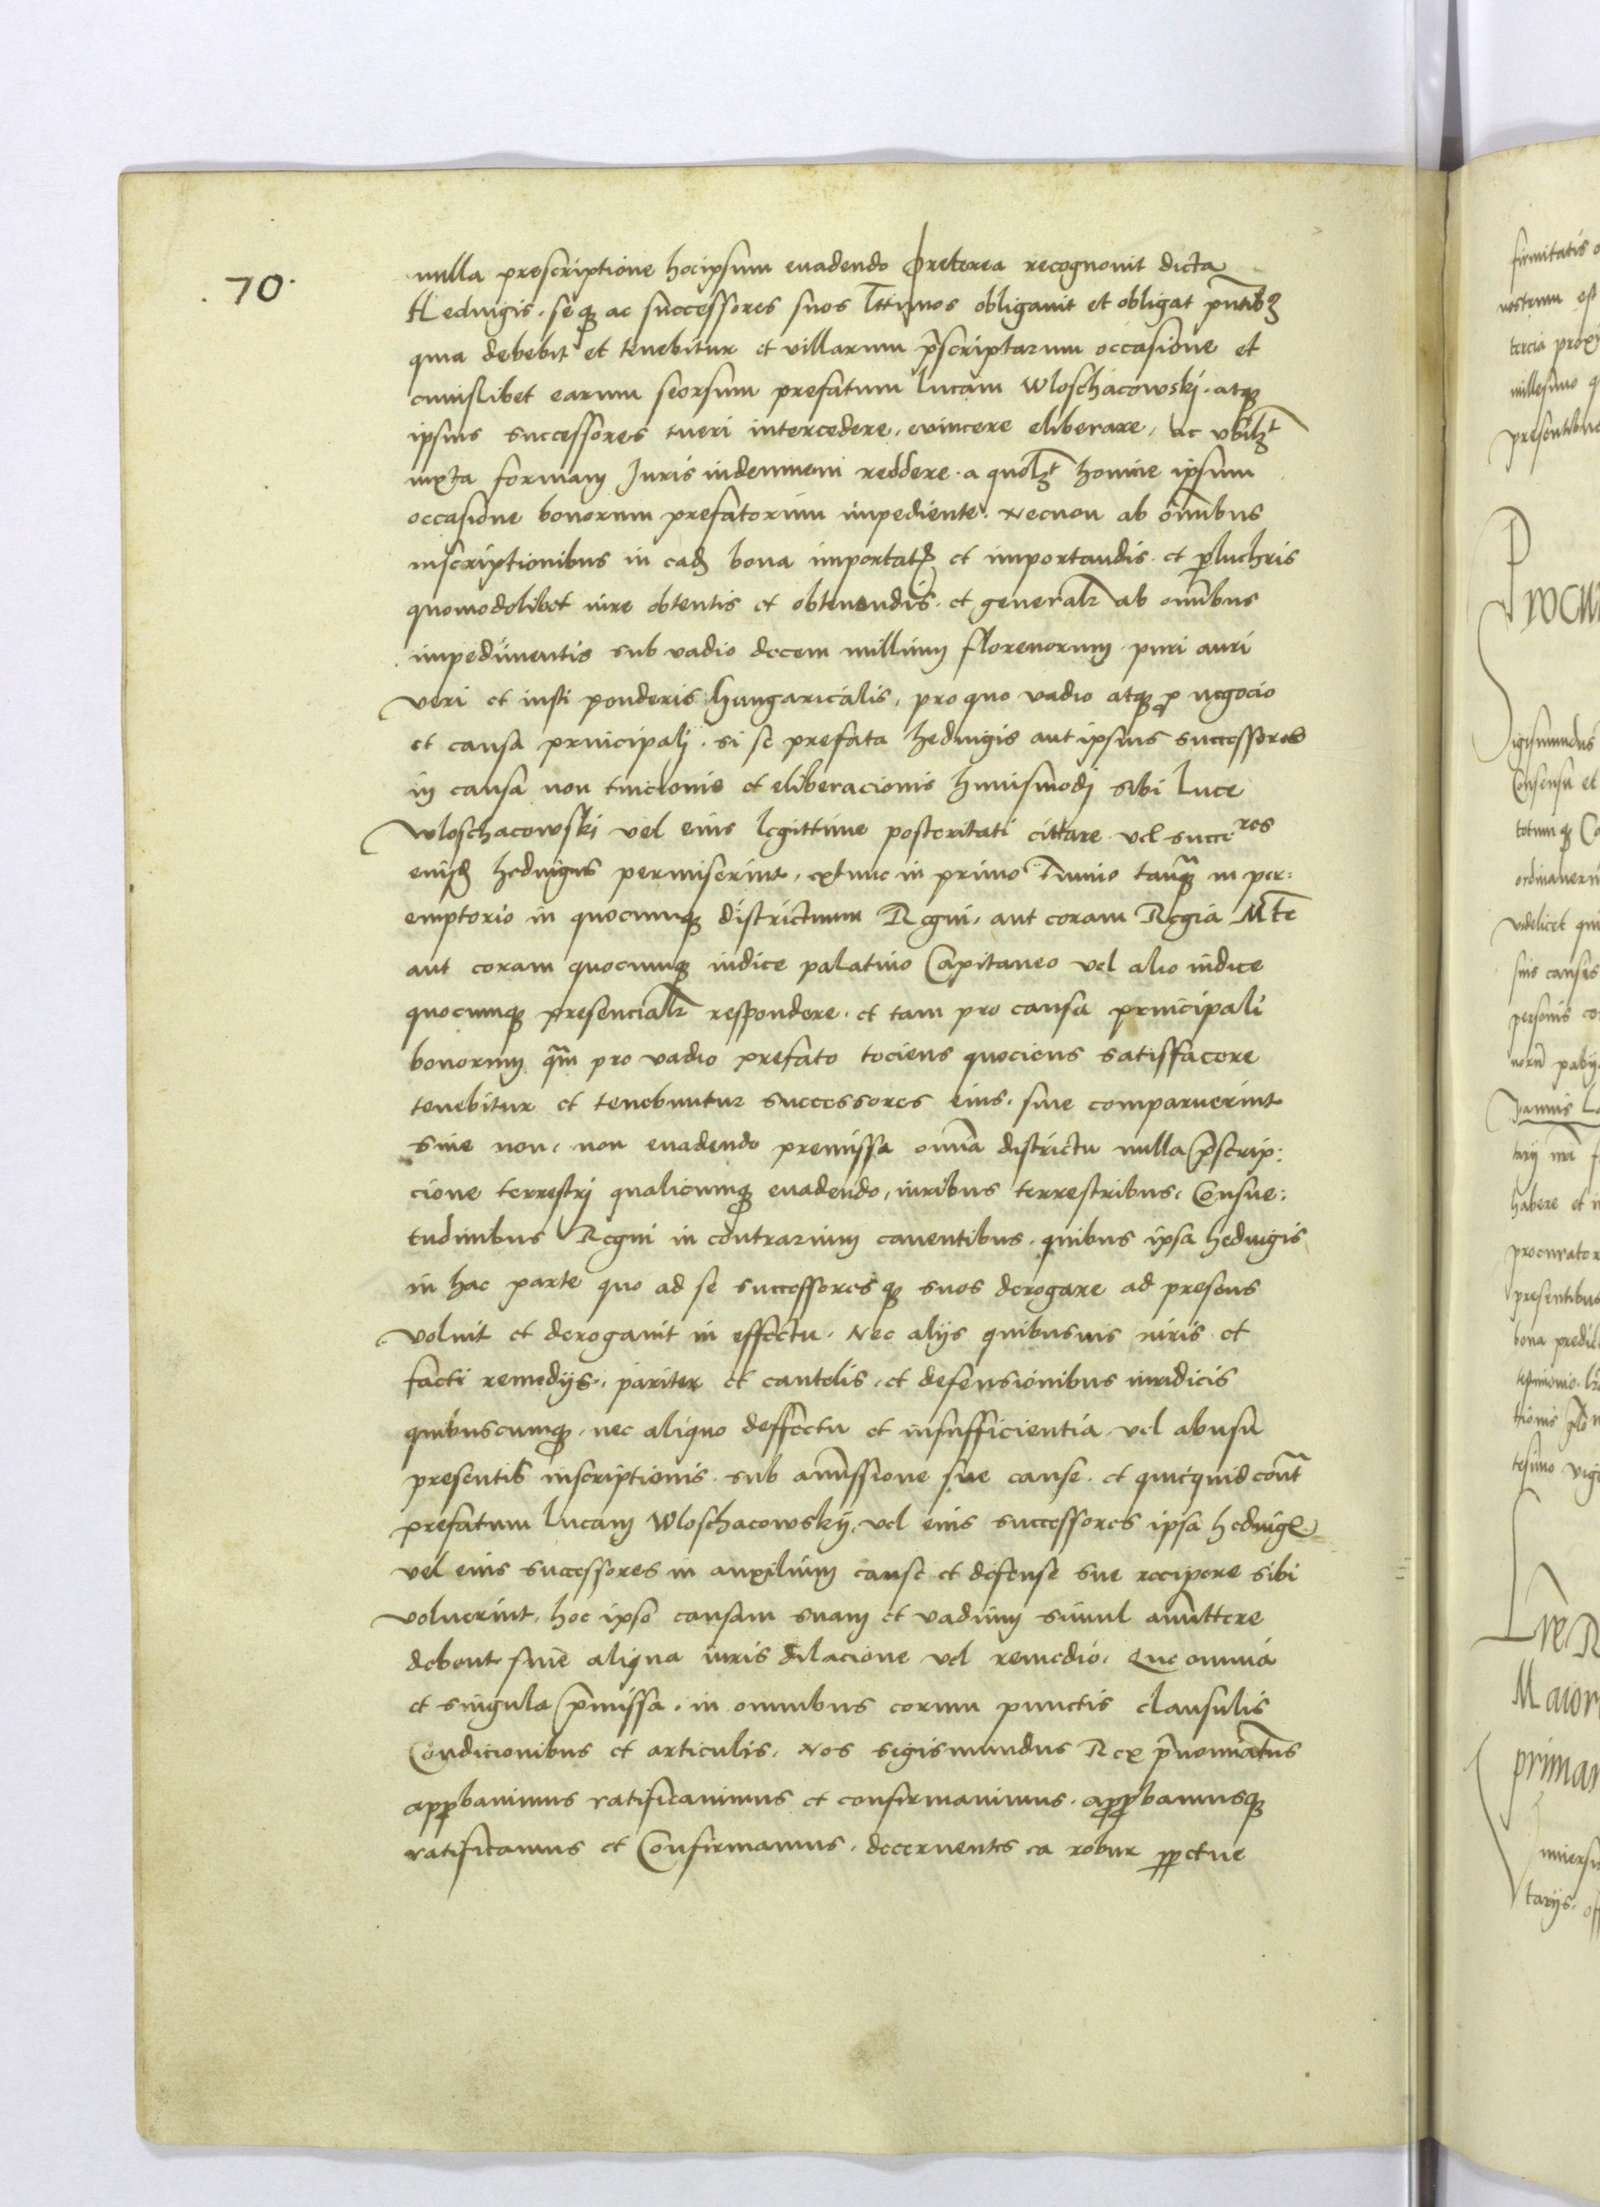 .70.
nulla proscriptione hocipsum euadendo Preterea recognouit dicta
Heduigis. seq ac successores suos lttimos obligauit et obligat pntib
quia debebit et tenebitur et villarum pscriptarum occasione et
cuiuslibet earum seorsum prefatum lucam Wloschacowski. atq
ipsius successores tueri intercedere, euincere eliberare, ac vbilt
iuxta formam Juris indemnem reddere. a quolt homine ipsum
occasione bonorum prefatorum impediente. Necnon ab omnibus
inscriptionibus in ead bona importat et importandis. et pluchris
quomodolibet iure obtentis et obtenendis. et generalr ab omnibus
impedimentis sub vadio decem millium florenorum puri auri
veri et iusti ponderis hungaricalis, pro quo vadio atq p negocio
et causa principalj. si se prefata heduigis aut ipsius successores
in causa non tuicionis et eliberacionis huiusmodj sibi luce
Wloschacowski vel eius legittime posteritati cittare vel succres
eiusd heduigis permiserint, extunc in primo Tmino tanq in per:
emptorio in quocumq districtuum Regni, aut coram Regia Mte
aut coram quocumq iudice palatino Capitaneo vel alio iudice
quocumq presencialr respondere. et tam pro causa principali
bonorum qm pro vadio prefato tociens quociens satisfacere
tenebitur et tenebuntur successores eius. siue comparuerint
siue non, non euadendo premissa omnia districtu nulla pscrip:
cione terrestrj qualicumq euadendo, iuribus terrestribus, Consue:
tudinibus Regni in contrarium cauentibus. quibus ipsa heduigis
in hac parte quo ad se successoresq suos derogare ad presens
voluit et derogauit in effectu. Nec alijs quibusuis iuris et
facti remedijs, pariter et cautelis, et defensionibus iuridicis
quibuscumq, nec aliquo deffectu et insufficientia vel abusu
presentis inscriptionis. sub amissione sue cause. et quicquid cont
prefatum lucam Wloschacowskij, vel eius successores ipsa heduig
vel eius successores in auxilium cause et defense sue recipere sibi
voluerint, hoc ipso causam suam et vadium simul amittere
debent sine aliqua iuris dilacione vel remedio. Que omnia
et singula pmissa. in omnibus eorum punctis clausulis
Condicionibus et articulis. Nos sigismundus Rex pnominatus
appbauimus ratificauimus et confirmauimus. appbamusq
ratificamus et Confirmamus. decernentes ea robur ppetue